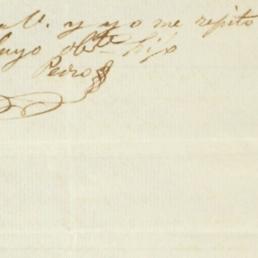 a V. y yo me repito
suyo obte hijo
Pedro